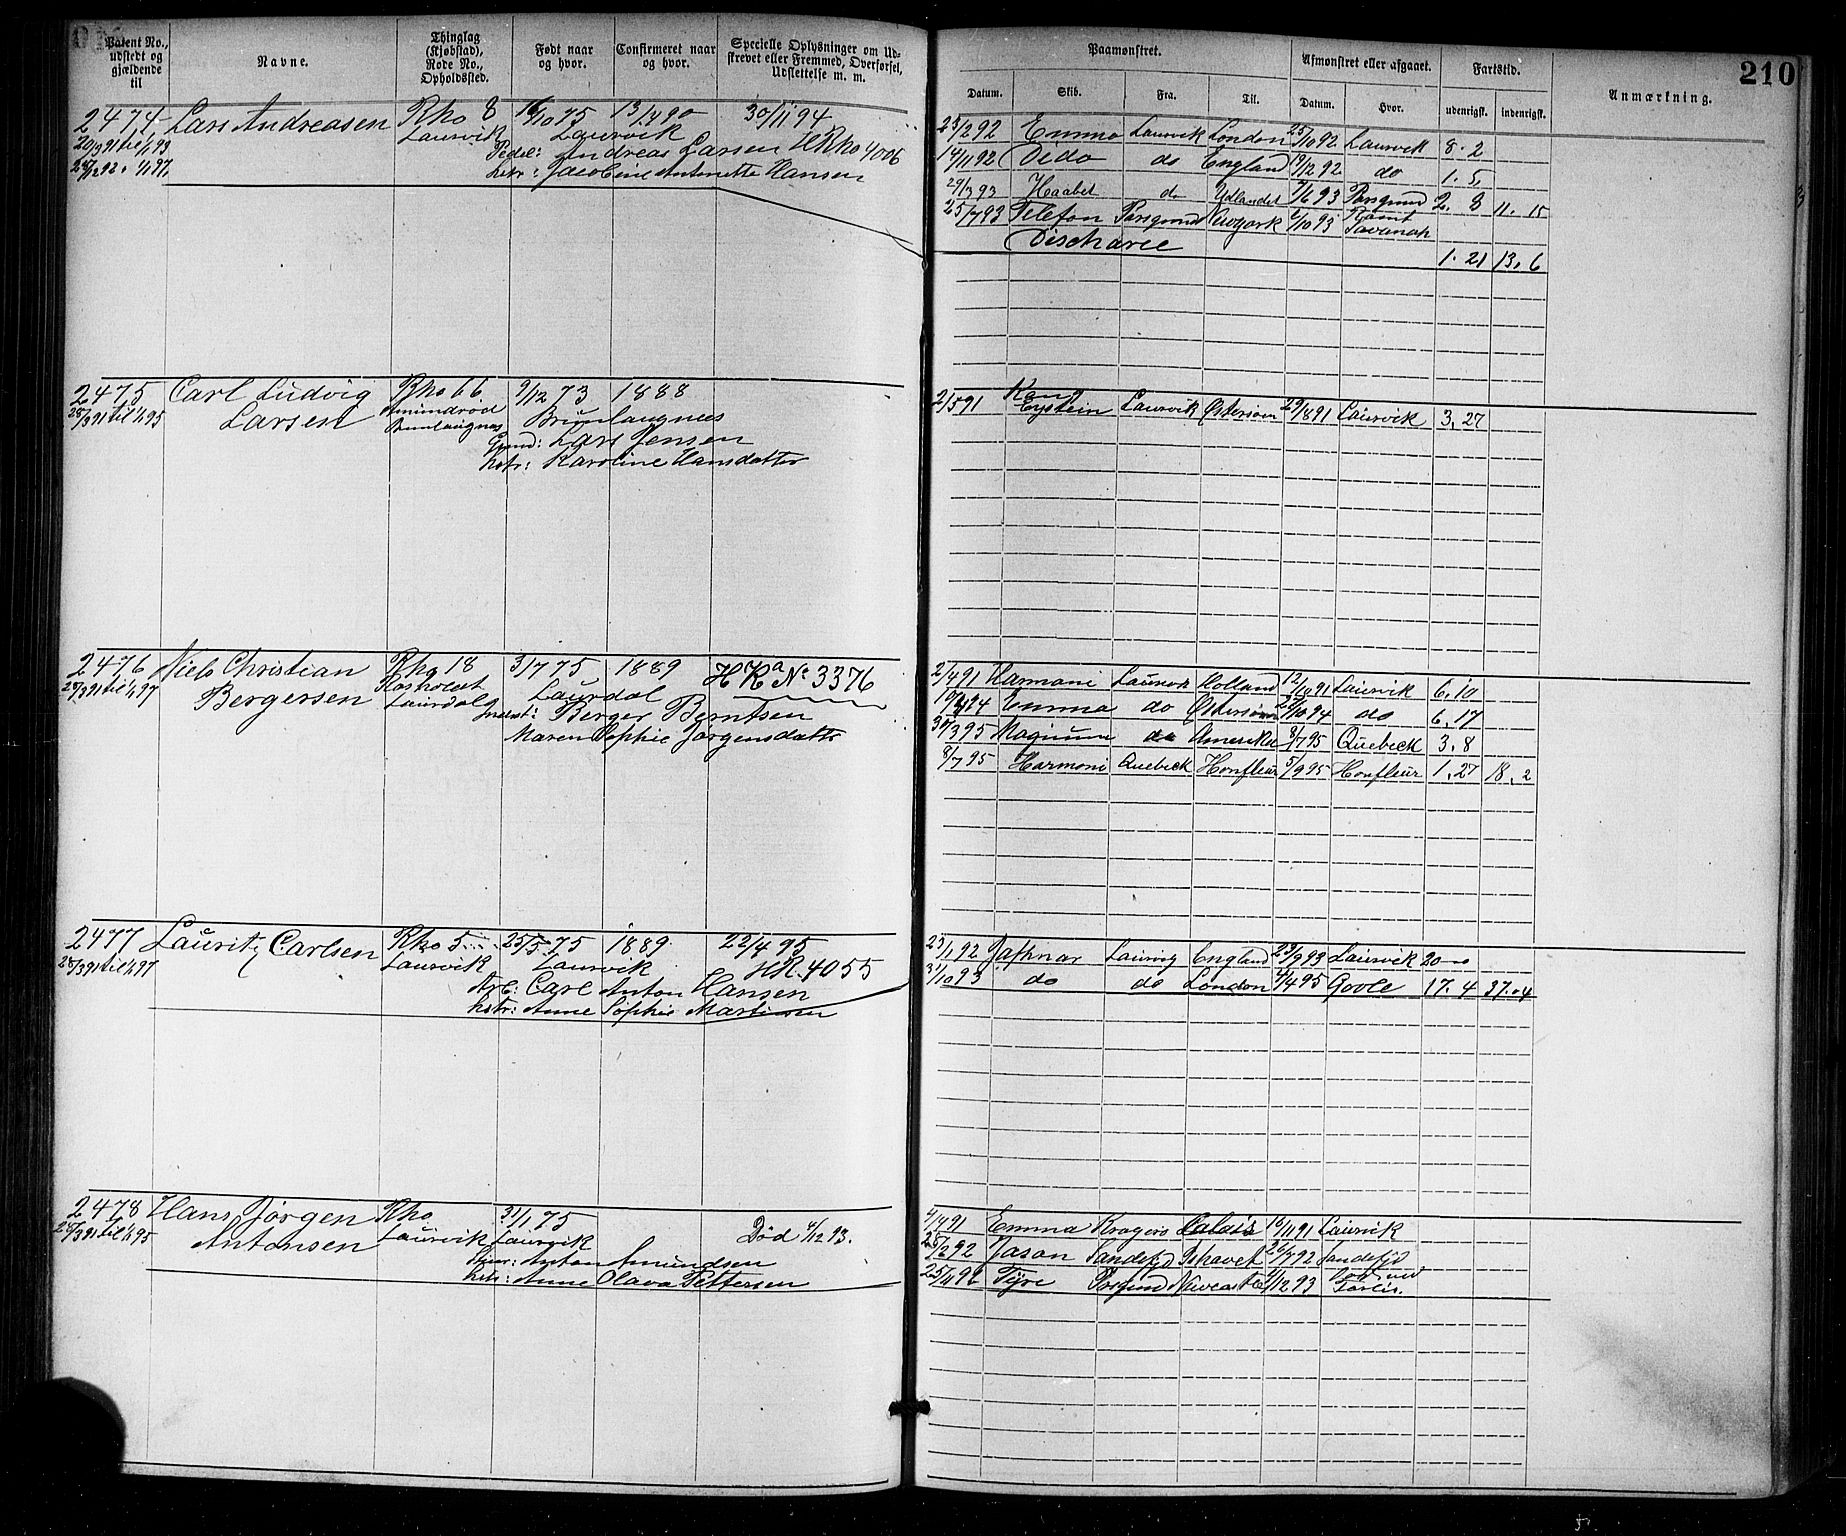 210
Patent No., udstedt og gjældende til
Navne.
Thinglag (Kjøbstad), Rode No., Opholdssted.
Født naar og hvor.
Confirmeret naar og hvor.
Specielle Oplysninger om Udskrevet eller Fremmed, Overførsel, Udslettelse m. m.
Paamønstret.
Afmønstret eller afgaaet.
Fartstid.
Anmærkning.
Datum. Skib. Fra. Til. Datum. Hvor. udenrigsk. indenrigsk.
2474 Lars Andreasen Rho 8 16/10 75 13/4 90 30/11 94
20/9 91 til 1/1 93 Laurvik Laurvik
Pedel: Andreas Larsen HRho 4006
28/12 92 " 1/1 97
hstr: Jacobine Antonette Hansen
25/2 92 Emma Laurvik London 25/10 92 Laurvik 8. 2
14/11 92 Dido do England 19/12 92 do 1. 5.
29/3 93 Haabet do Udlandet 7/6 93 Porsgrund 2. 8 11. 15
25/7 93 Telefon Porsgrund Newyork 2/10 93 Rømt Savanah
Discharee 1. 21 13. 6
2475 Carl Ludvig Rho 66. 9/12 73 1888
28/3 91 til 1/1 95 Larsen Amundrod Brunlaugnes Brunlaugnes
Grmd: Lars Jensen
hstr: Karoline Hansdatter
2/5 91 Kong Eystein Laurvik Østersøen 29/8 91 Laurvik 3. 27
2476 Niels Christian Rho 18 31/7 75 1889 HRa No 3376
28/3 91 til 1/1 97 Bergersen Laurdal Laurdal
Indst: Berger Berntsen
Maren Sophie Jørgensdatter
2/4 91 Harmoni Laurvik Holland 12/10 91 Laurvik 6. 10
Emma do Østersøen 94 do 6. 17
3 95 Magnum do Amerika 8/7 95 Quebeck 3. 8
8/7 95 Harmoni Quebeck Honfleur 5/9 95 Honfleur 1. 27 18. 2
2477 Lauritz Carlsen Rho 5 25/5 75 1889 22/4 95
28/3 91 til 1/1 97 Laurvik Laurvik HR. 4055
Arb: Carl Anton Hansen
hstr: Anne Sophie Martinsen
23/1 92 Jafhnar Laurvig England 23/9 93 Laurvik 20 "
31/10 93 do do London 4/4 95 Goole 17. 4 37. 4
2478 Hans Jørgen Rho 31/1 75
28/3 91 til 1/1 95 Antonsen Laurvik Laurvik Død 4/12 93.
Anton Amundsen
hstr: Anne Olava Pettersen
4/4 91 Emma Kragerø Calais 16/11 91 Laurvik
25/2 92 Jason Sandefjd Ishavet 26/7 92 Sandefjd
25/11 92 Tyre Porsgrund Newcastle 4/12 93 Død ved